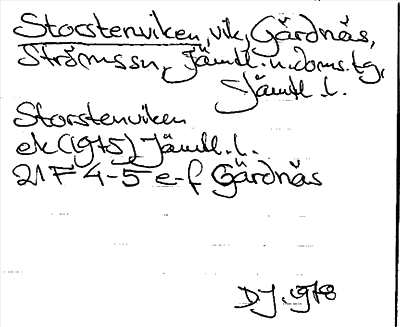 Storstenviken, vik, Gärdnäs,
Ströms sn, Jämtl. n. doms. tg,
Jämtl. l.
Storstenviken
ek (1975) Jämtl. l.
21 F 4-5 e-f Gärdnäs
DJ 1978